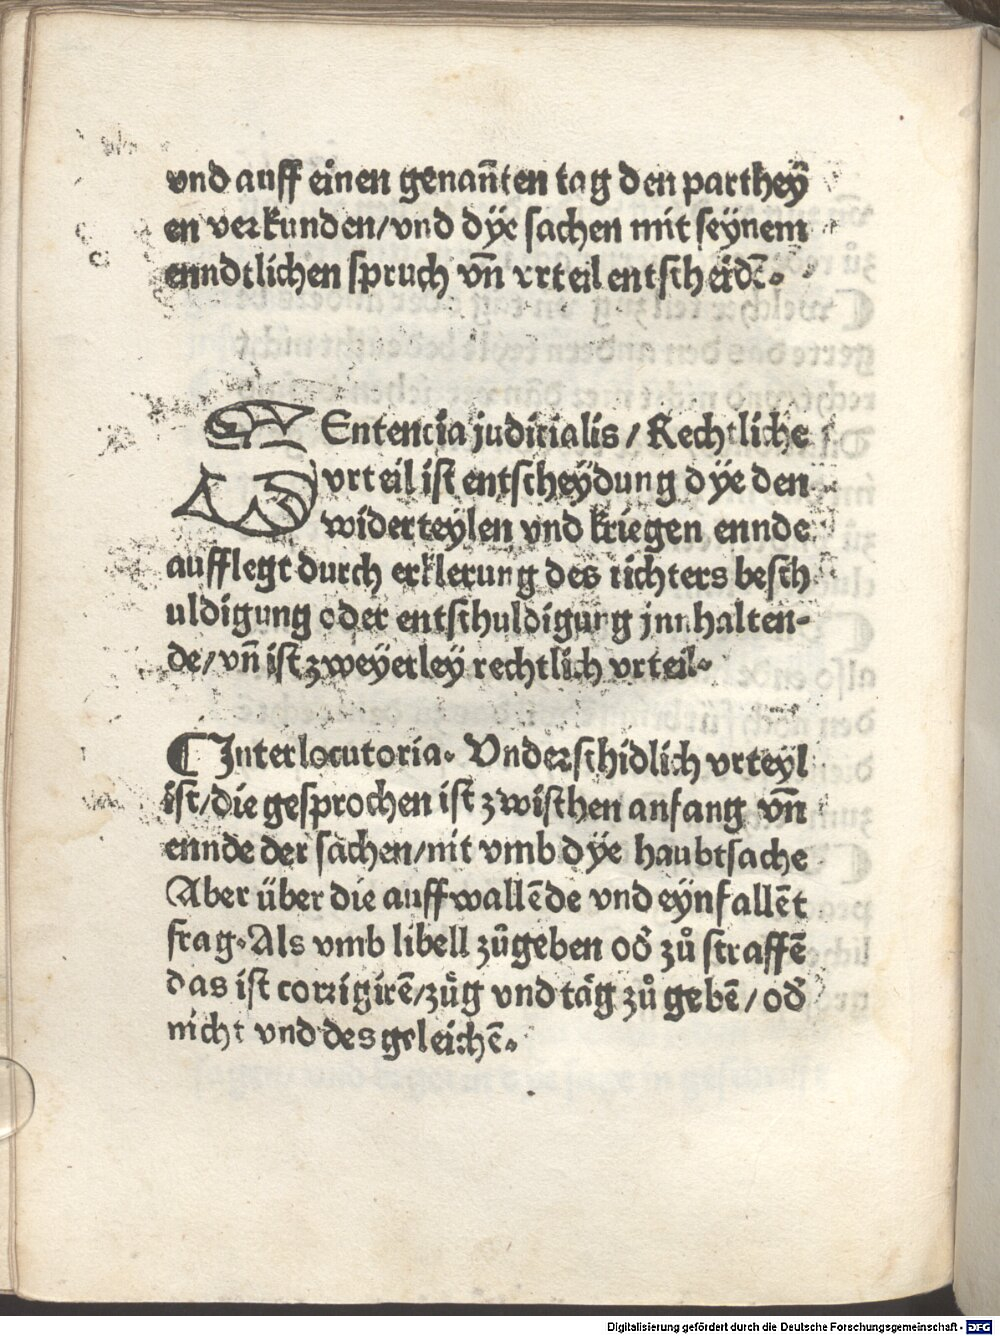 vnd auff einen genañten tag den partheÿ
en verkunden/vnd dÿe sachen mit seÿnem
enndtlichen spruch vñ vrteil entscheidē.
SEntencia judicialis / Rechtliche
vrteil ist entscheÿdung dÿe den
widerteylen vnd kriegen ennde
aufflegt durch erklerung des richters besch
uldigung oder entschuldigung jnnhalten-
de/vñ ist zweÿerleÿ rechtlich vrteil.
¶ Interlocutoria. Vnderschidlich vrteÿl
ist/die gesprochen ist zwisthen anfang vñ
ennde der sachen/nit vmb dÿe haubtsache
Aber über die auffwallēde vnd eÿnfallēt
frag. Als vmb libell zůgeben od̕ zů straffē
das ist corrigirē/zůg vnd täg zů gebē/od̕
nicht vnd des geleichē.
Digitalisierung gefördert durch die Deutsche Forschungsgemeinschaft - DFG